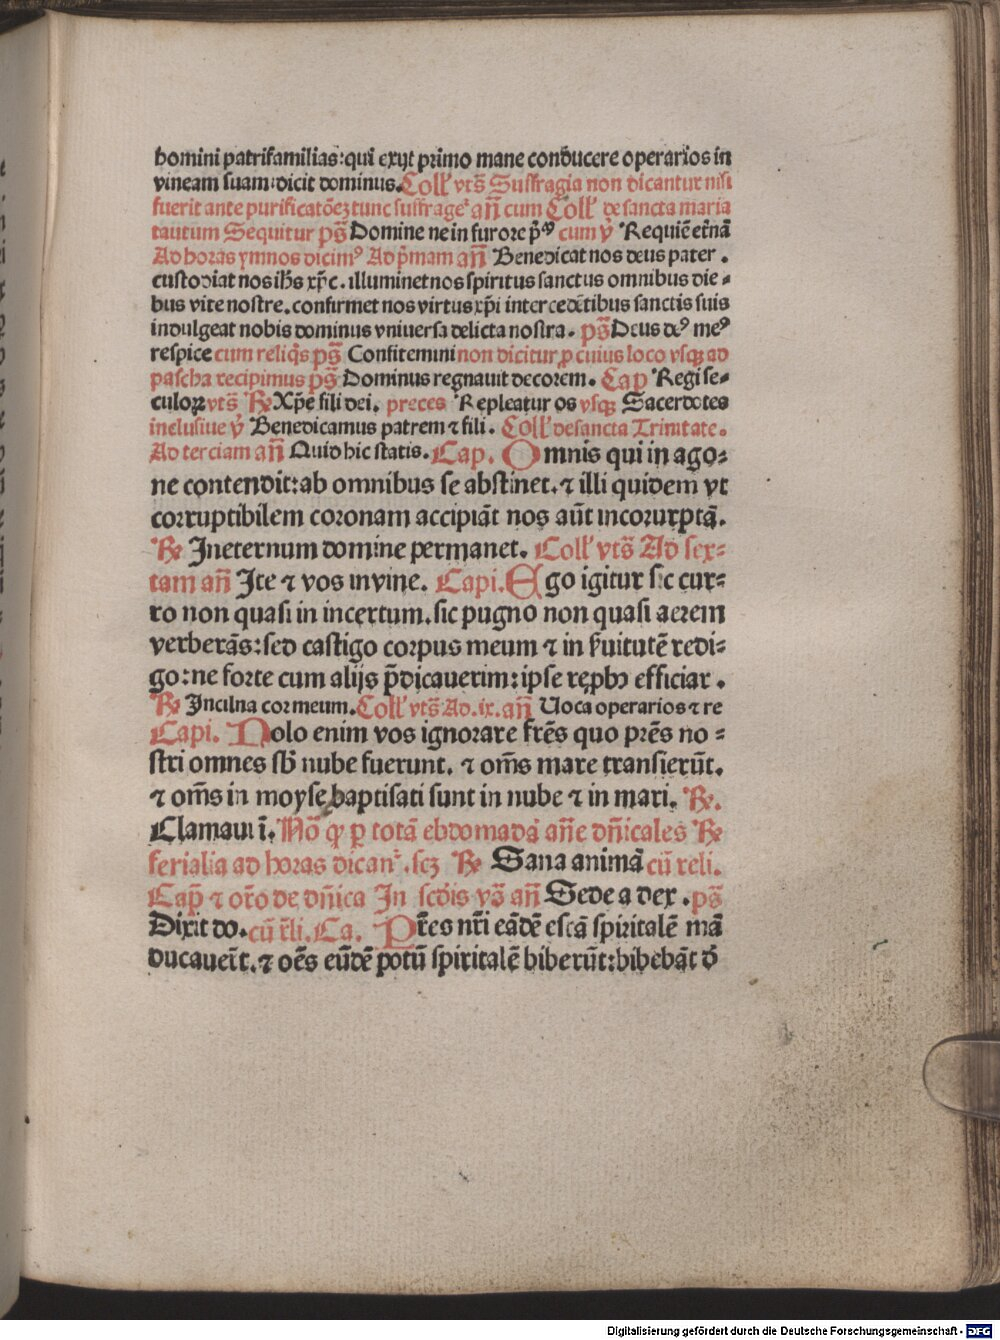 homini patrifamilias: qui exijt primo mane conducere operarios in
vineam suam: dicit dominus. Coll' vts̄ Suffragia non dicantur nisi
fuerit ante purificatōeȝ tunc suffrage' an̄ cum Coll' de sancta maria
tantum Sequitur ps̄ Domine ne in furore p̄ cum v̊ Requiē etn̄ā
Ad horas ymnos dicimꝰ Ad p̄mam an̄ Benedicat nos deus pater .
custodiat nos ih̄s xp̄c . illuminet nos spiritus sanctus omnibus die=
bus vite nostre . confirmet nos virtus xp̄i intercedētibus sanctis suis
indulgeat nobis dominus vniuersa delicta nostra . ps̄ Deus deꝰ meꝰ
respice cum reliq̄s ps̄ Confitemini non dicitur ꝓ cuius loco vsqȝ ad
pascha recipimus ps̄ Dominus regnauit decorem . Cap̄ Regi se=
culoꝝ vts̄ ℟ Xp̄e fili dei . preces Repleatur os vsqȝ Sacerdotes
inclusiue v̊ Benedicamus patrem ⁊ fili . Coll' de sancta Trinitate .
Ad terciam an̄ Quid hic statis . Cap . Omnis qui in ago=
ne contendit: ab omnibus se abstinet . ⁊ illi quidem vt
corruptibilem coronam accipiāt nos aūt incorurptā .
℟ Ineternum domine permanet . Coll' vts̄ Ad sex=
tam an̄ Ite ⁊ vos in vine . Capi . Ego igitur sic cur=
ro non quasi in incertum . sic pugno non quasi aerem
verberās: sed castigo corpus meum ⁊ in ẜuitutē redi=
go: ne forte cum alijs p̄dicauerim: ipse rep̱bꝰ efficiar .
℟ Incilna cor meum . Coll' vts̄ Ad . ix . an̄ Uoca operarios ⁊ re
Capi . Nolo enim vos ignorare frēs quo prēs no =
stri omnes sb̄ nube fuerunt . ⁊ om̄s mare transierūt .
⁊ om̄s in moyse baptisati sunt in nube ⁊ in mari . ℟ .
Clamaui ī . Nō ꝙ ꝑ totā ebdomadā an̄e dn̄icales ℟
ferialia ad horas dican' . scȝ ℟ Sana animā cū reli .
Cap̄ ⁊ orō de dn̄ica In scd̄is vs̄ an̄ Sede a dex . ps̄
Dixit do . cū r̄li . Ca . Prēs nr̄i eādē escā spiritalē mā
ducauer̄t . ⁊ oēs eūdē potū spiritalē biberūt: bibebāt d̄
Digitalisierung gefördert durch die Deutsche Forschungsgemeinschaft - DFG